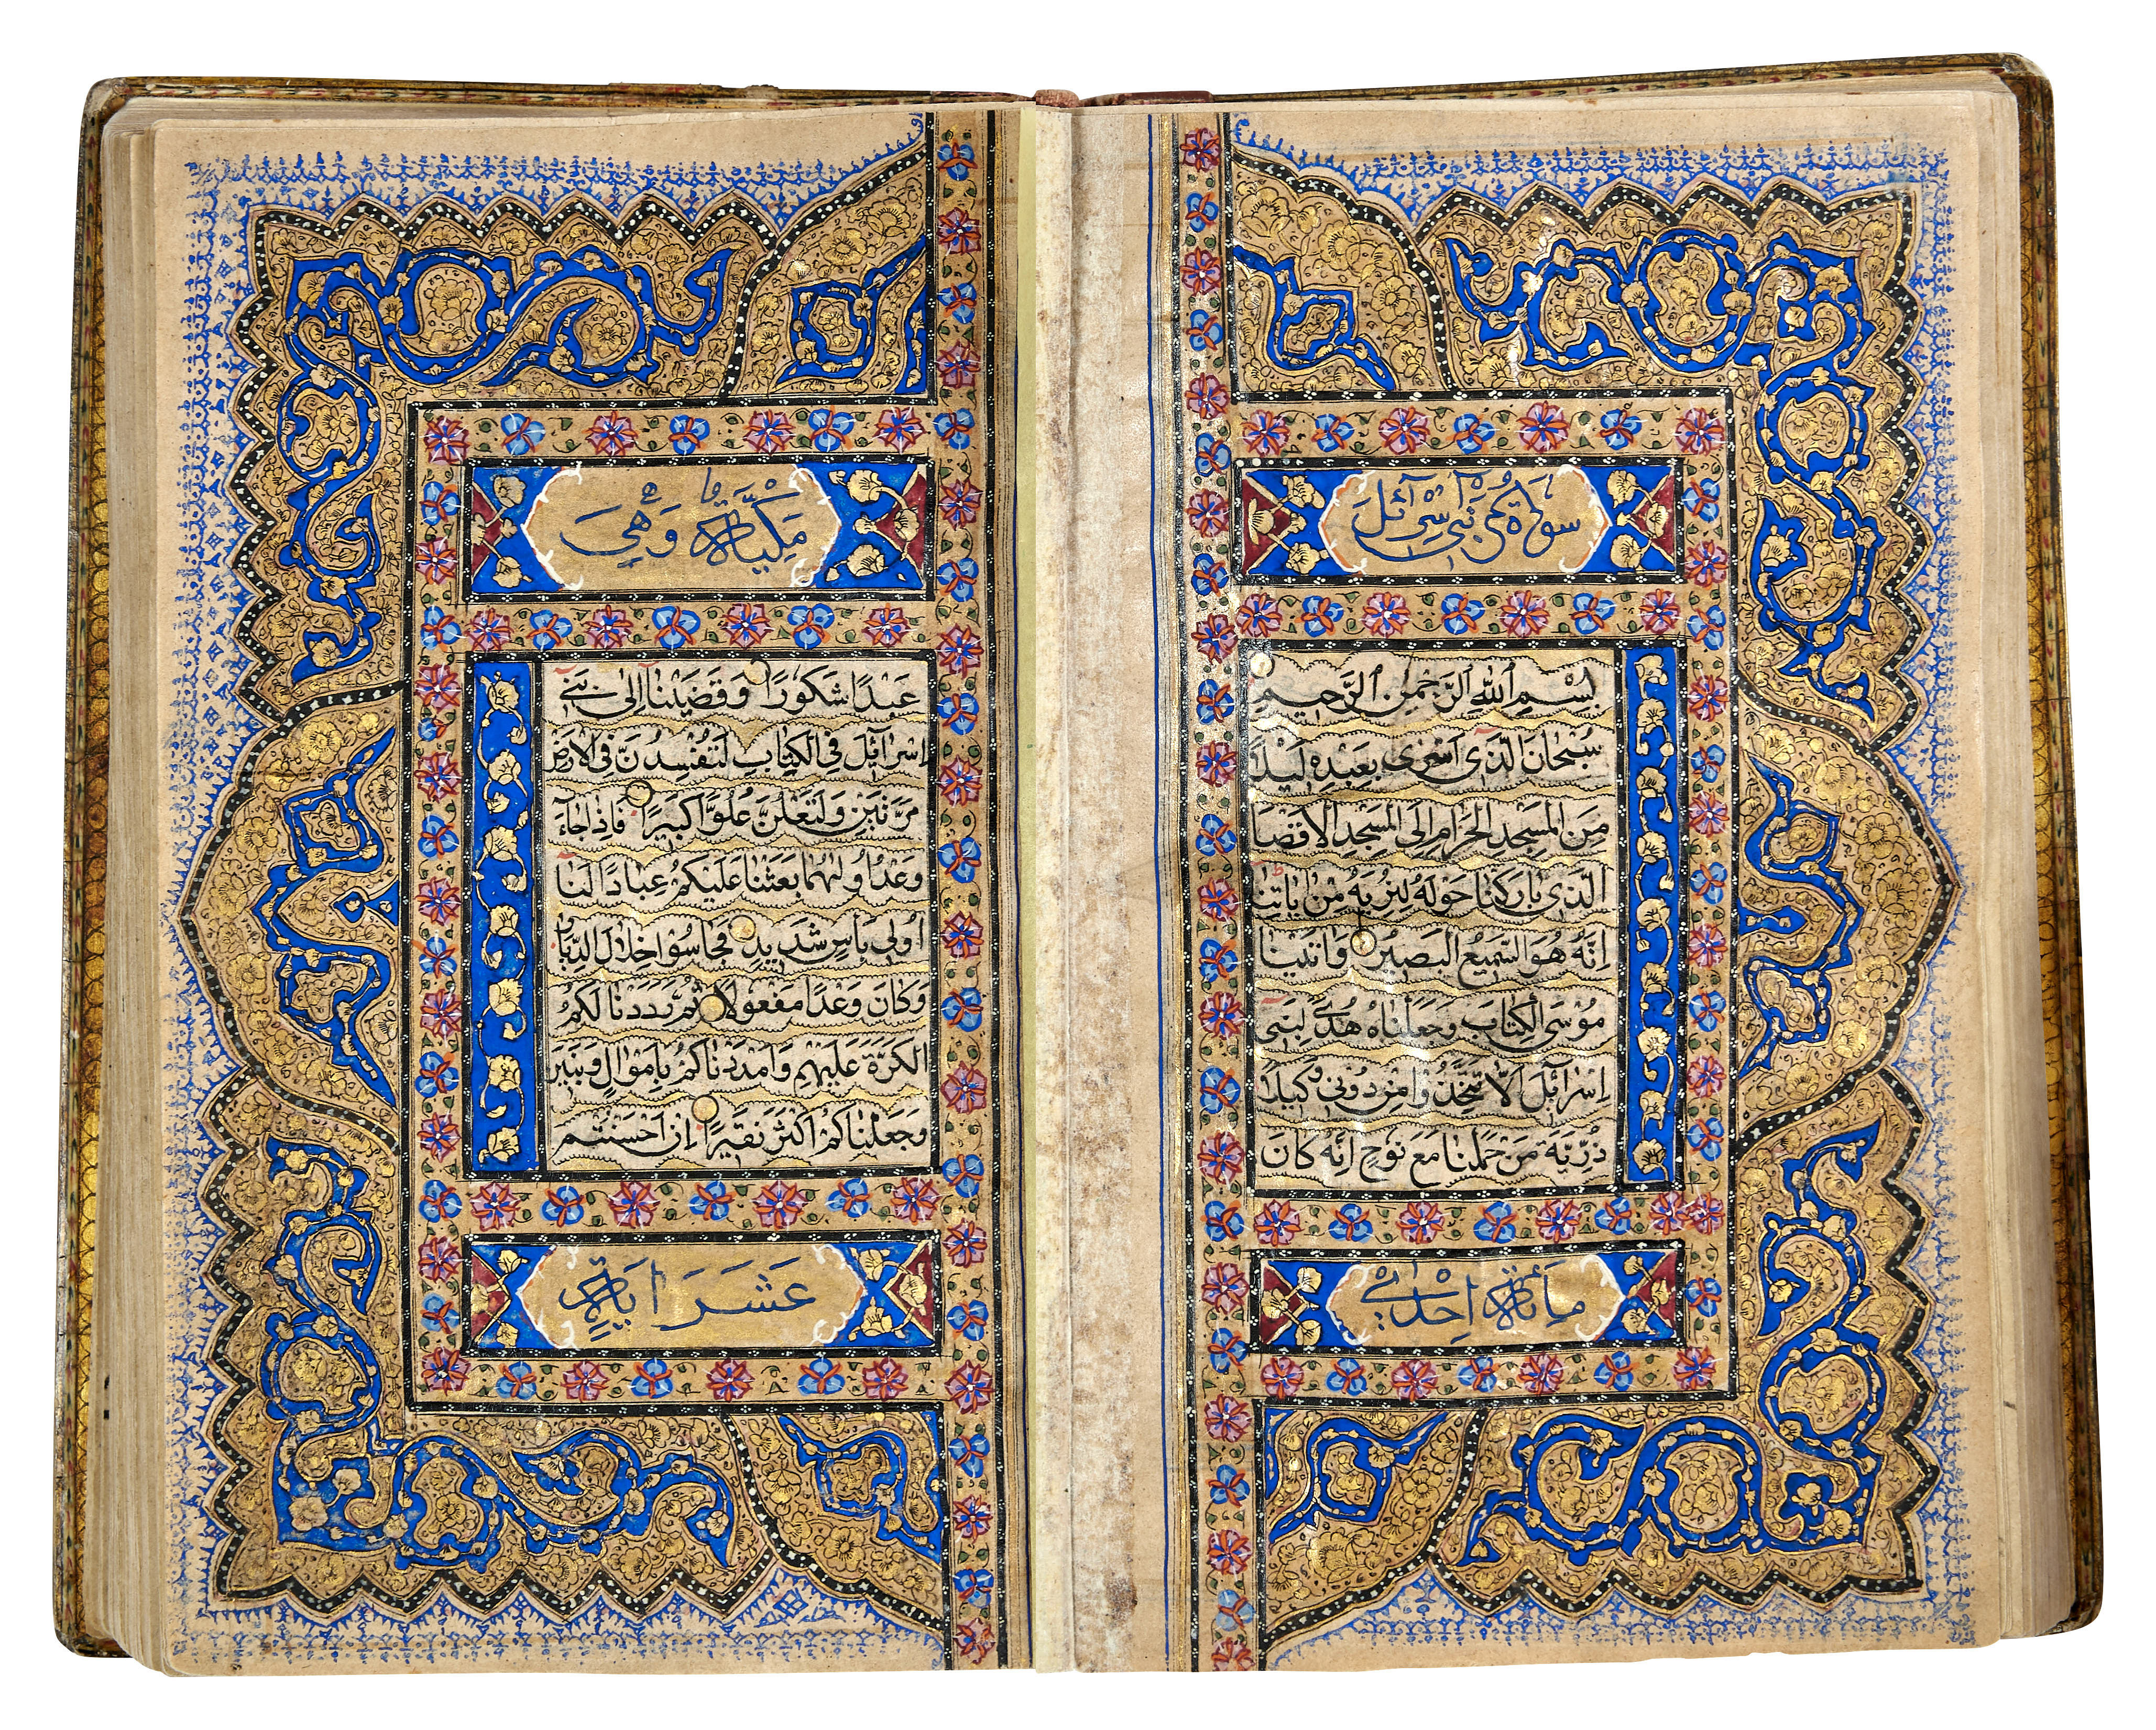 سورة بني إسرائل
بِسْمِ اللهِ الرَّحْمٰنِ الرَّحِيمِ
سُبْحَانَ الَّذِي أَسْرَى بِعَبْدِهِ لَيْلًا
مِنَ الْمَسْجِدِ الْحَرَامِ إِلَى الْمَسْجِدِ الْأَقْصَا
الَّذِي بَارَكْنَا حَوْلَهُ لِنُرِيَهُ مِنْ اٰيَاتِنَا
اِنَّهُ هُوَ السَّمِيعُ الْبَصِيرُ وَاٰتَيْنَا
مُوسَى الْكِتَابَ وَجَعَلْنَاهُ هُدًى لِبَنِي
اِسْرَآئِلَ اَلَّا تَتَّخِذُوا مِنْ دُونِي وَكِيلًا
ذُرِّيَّةَ مَنْ حَمَلْنَا مَعَ نُوحٍ اِنَّهُ كَانَ
مائة احدى
مكية وهي
عَبْدًا شَكُورًا وَقَضَيْنَا اِلَى بَنِي
اِسْرَآئِلَ فِي الْكِتَابِ لَتُفْسِدُنَّ فِي الْاَرْضِ
مَرَّتَيْنِ وَلَتَعْلُنَّ عُلُوًّا كَبِيرًا فَاِذَا جَآءَ
وَعْدُ اُولٰهُمَا بَعَثْنَا عَلَيْكُمْ عِبَادًا لَنَا
اُولِي بَأْسٍ شَدِيدٍ فَجَاسُوا خِلَالَ الدِّيَارِ
وَكَانَ وَعْدًا مَفْعُولًا ثُمَّ رَدَدْنَا لَكُمُ
الْكَرَّةَ عَلَيْهِمْ وَاَمْدَدْنَاكُمْ بِاَمْوَالٍ وَبَنِينَ
وَجَعَلْنَاكُمْ اَكْثَرَ نَفِيرًا اِنْ اَحْسَنْتُمْ
عَشَرَ اية